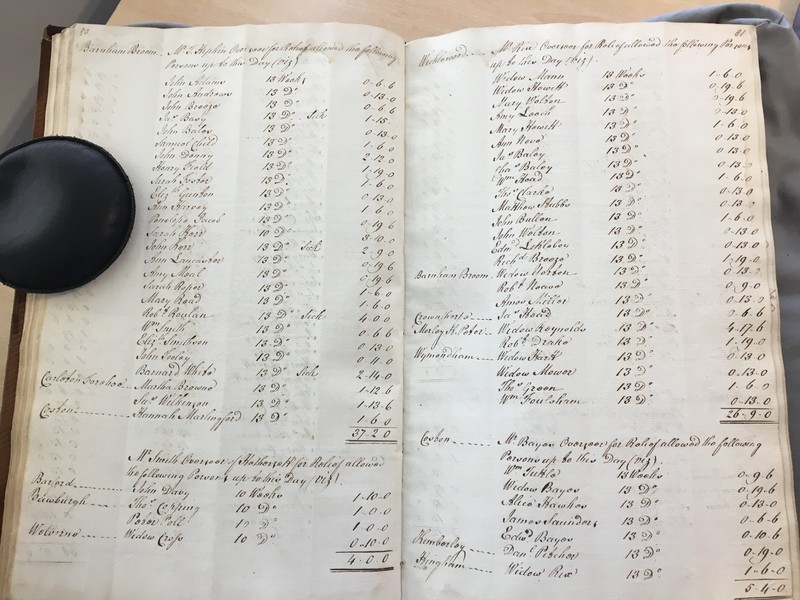 80
Barnham Broom.. Mr. J. Hipkin Overseer for Relief allowed the following
Persons up to this Day (Viz)
John Adams 13 Weeks 0-6-6
John Andrews 13 Do. 0-13-0
John Breeze 13 Do. 0-6-6
Jas. Bavy 13 Do. Sick 1-15-
John Baley 13 Do. 0-13-0
Samuel Child 13 Do. 1-6-0
John Denny 13 Do. 2-12-0
Henry Field 13 Do. 1-19-0
Sarah Foster 13 Do. 1-6-0
Eliz. Gunton 13 Do. 0-13-0
Ann Harvey 13 Do. 1-6-0
Penelope Jacob 13 Do. 0-19-6
Sarah Kerr 10 Do. 3-10-0
John Kerr 13 Do. Sick 2-9-0
Ann Lancaster 13 Do. 0-19-6
Amy Moal 13 Do. 0-19-6
Sarah Roper 13 Do. 1-6-0
Mary Read 13 Do. 1-6-0
Robt. Roylan 13 Do. Sick 4-0-0
Wm. Smith 13 Do. 0-6-6
Eliz. Smithson 13 Do. 0-13-0
John Tooley 13 Do. 0-4-0
Barnard White 13 Do. Sick 2-14-0
Carleton Forehoe Martha Browne 13 Do. 1-12-6
Thos. Wilkinson 13 Do. 1-13-6
Coston Hannah Marlingford 13 Do. 1-6-0
37-2-0
Mr. Smith Overseer of Hethersett for Relief allowed
the following Persons up to this Day (Viz)
Barford John Davy 10 Weeks 1-10-0
Bawburgh Thos. Copping 10 Do. 1-0-0
Peter Poll 10 Do. 1-0-0
Welborne Widow Cross 10 Do. 0-10-0
4-0-0
81
Wicklewood Mr. Rix Overseer for Relief allowed the following Persons
up to this Day (Viz).
Widow Mann 13 Weeks 1-6-0
Widow Howett 13 Do. 0-19-6
Mary Watson 13 Do. 0-19-6
Amy Looch 13 Do. 0-13-0
Mary Howett 13 Do. 1-6-0
Ann Neve 13 Do. 0-13-0
Jas. Baley 13 Do. 0-13-0
Chas. Baley 13 Do. 0-13-
Wm. Head 13 Do. 1-6-0
Thos. Clarke 13 Do. 0-13-0
Matthew Stubbs 13 Do. 0-13-0
John Bullen 13 Do. 1-6-0
John Watson 13 Do. 0-13-0
Edwd. 13 Do. 0-13-0
Richd. Breeze 13 Do. 1-19-0
Barnham Broom Widow Norton 13 Do. 0-13-
Robt. 13 Do. 0-9-0
Amos Miller 13 Do. 0-13-0
Crownthorpe Jas. Head 13 Do. 0-6-6
Morley St. Peter Widow Reynolds 13 Do. 4-17-6
Robt. Drake 13 Do. 1-19-0
Wymondham Widow Hart 13 Do. 0-13-0
Widow Mower 13 Do. 0-13-0
Thos. Green 13 Do. 1-6-0
Wm. Foulsham 13 Do. 0-13-0
26-9-0
Coston Mr. Bayes Overseer for Relief allowed the following
Persons up to this Day (Viz)
Wm. Tuttle 13 Weeks 0-9-6
Widow Bayes 13 Do. 0-19-6
Alice Hawkes 13 Do. 0-13-0
James Saunders 13 Do. 0-6-6
Edwd. Bayes 13 Do. 0-10-6
Kimberley Danl. Pitcher 13 Do. 0-19-0
Hingham Widow Rix 13 Do. 1-6-0
5-4-0